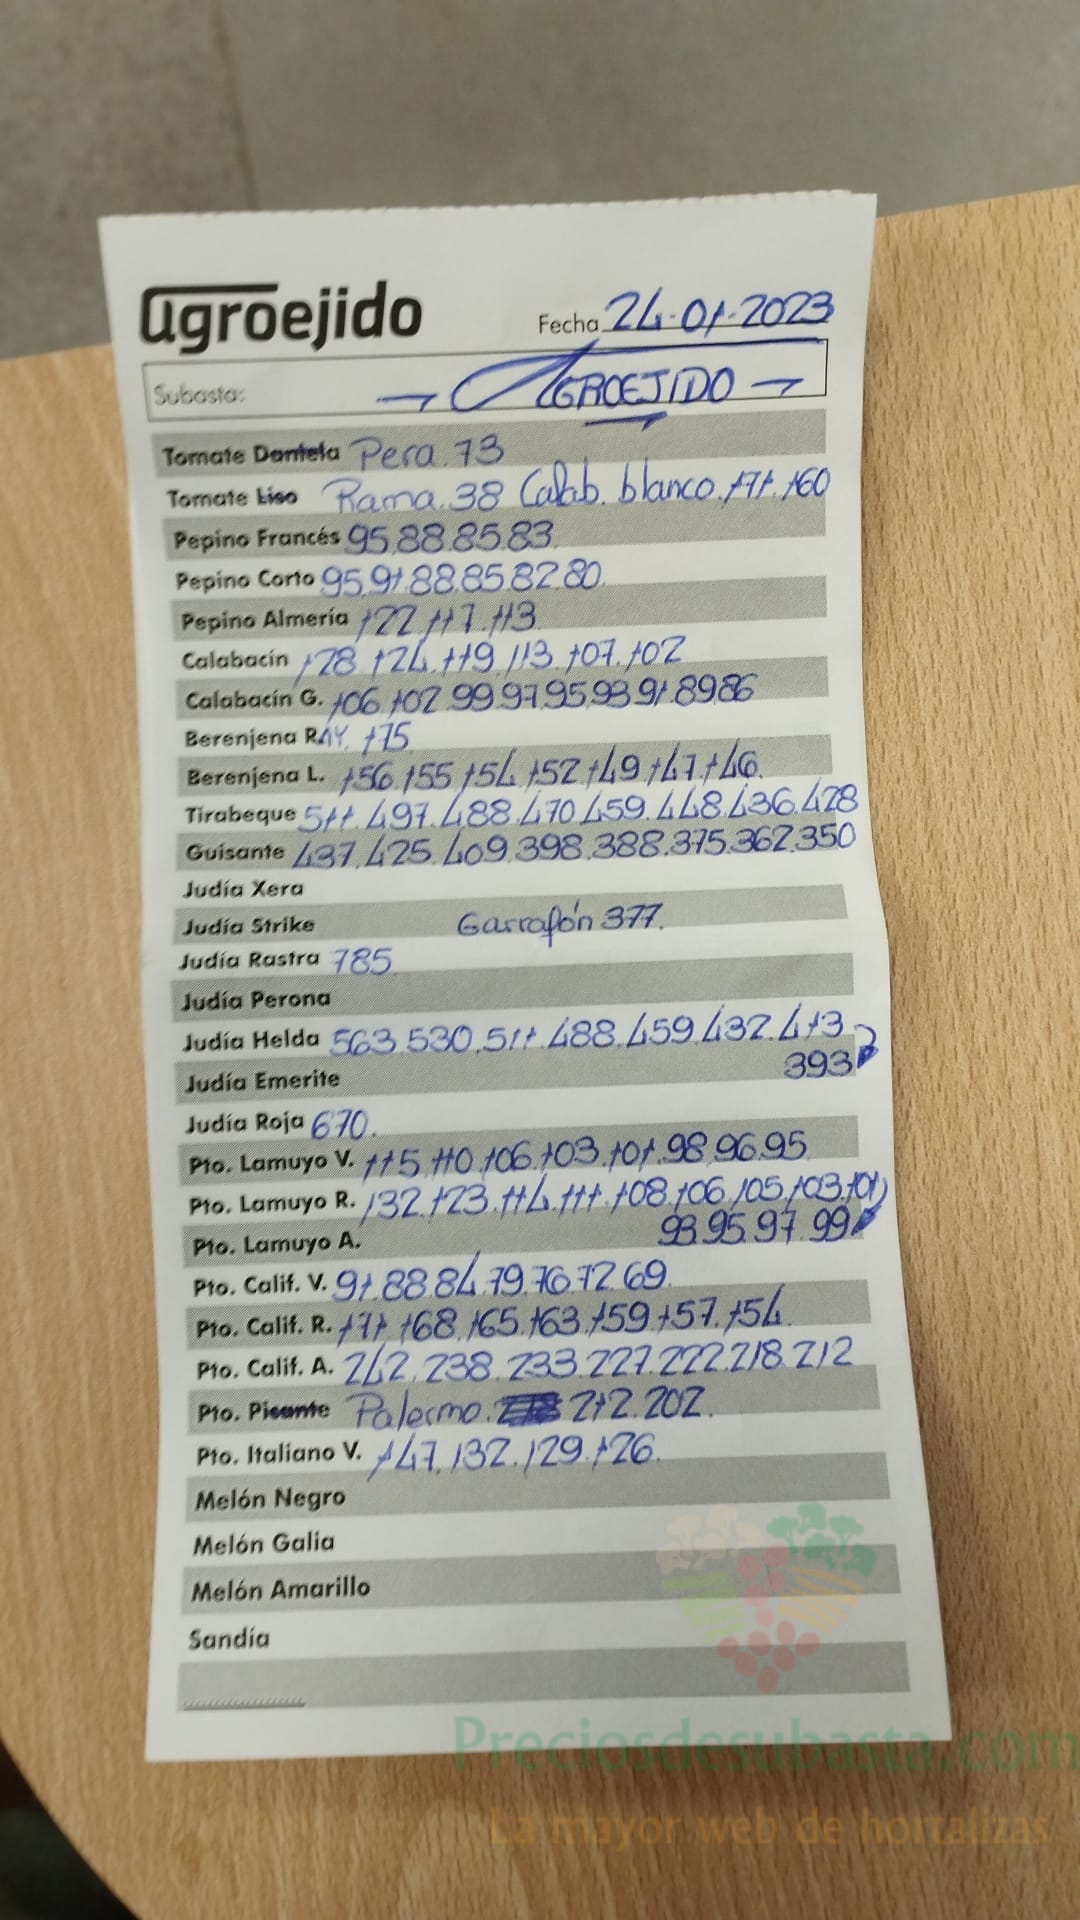 agroejido
Fecha 24-01-2023
Subasta: → AGROEJIDO →
Tomate Dantela Pera. 73
Tomate Liso Rama. 38 Calab. blanco. 171. 160
Pepino Francés 95.88.85.83.
Pepino Corto 95.91.88.85.82.80.
Pepino Almería 122.117.113.
Calabacín 128.124.119.113.107.102
Calabacín G. 106.102.99.97.95.93.91.89.86
Berenjena RAY. 175
Berenjena L. 156.155.154.152.149.147.146.
Tirabeque 511.497.488.470.459.448.436.428
Guisante 437.425.409.398.388.375.362.350
Judía Xera
Judía Strike Garrafón 377.
Judía Rastra 785
Judía Perona
Judía Helda 563.530.511.488.459.432.413
393
Judía Emerite
Judía Roja 670.
Pto. Lamuyo V. 115.110.106.103.101.98.96.95
Pto. Lamuyo R. 132.123.114.111.108.106.105.103.101
93.95.97.99
Pto. Lamuyo A.
Pto. Calif. V. 91.88.84.79.76.72.69.
Pto. Calif. R. 171.168.165.163.159.157.154.
Pto. Calif. A. 242.238.233.227.222.218.212
Pto. Picante Palermo. 212.202.
Pto. Italiano V. 147.132.129.126.
Melón Negro
Melón Galia
Melón Amarillo
Sandía
Preciosdesubasta.com
La mayor web de hortalizas